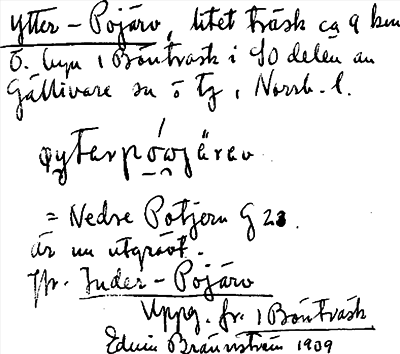 Ytter-Pojärv, litet träsk ca 9 km
Ö. byn i Böntrask i SO delen av
Gällivare sn o tg, Norrb. l.
= Nedre Potjern G 23.
Är nu utgrävt.
Jfr. Inder-Pojärv
Uppg. fr. i Böntrask
Edvin Brännström 1909